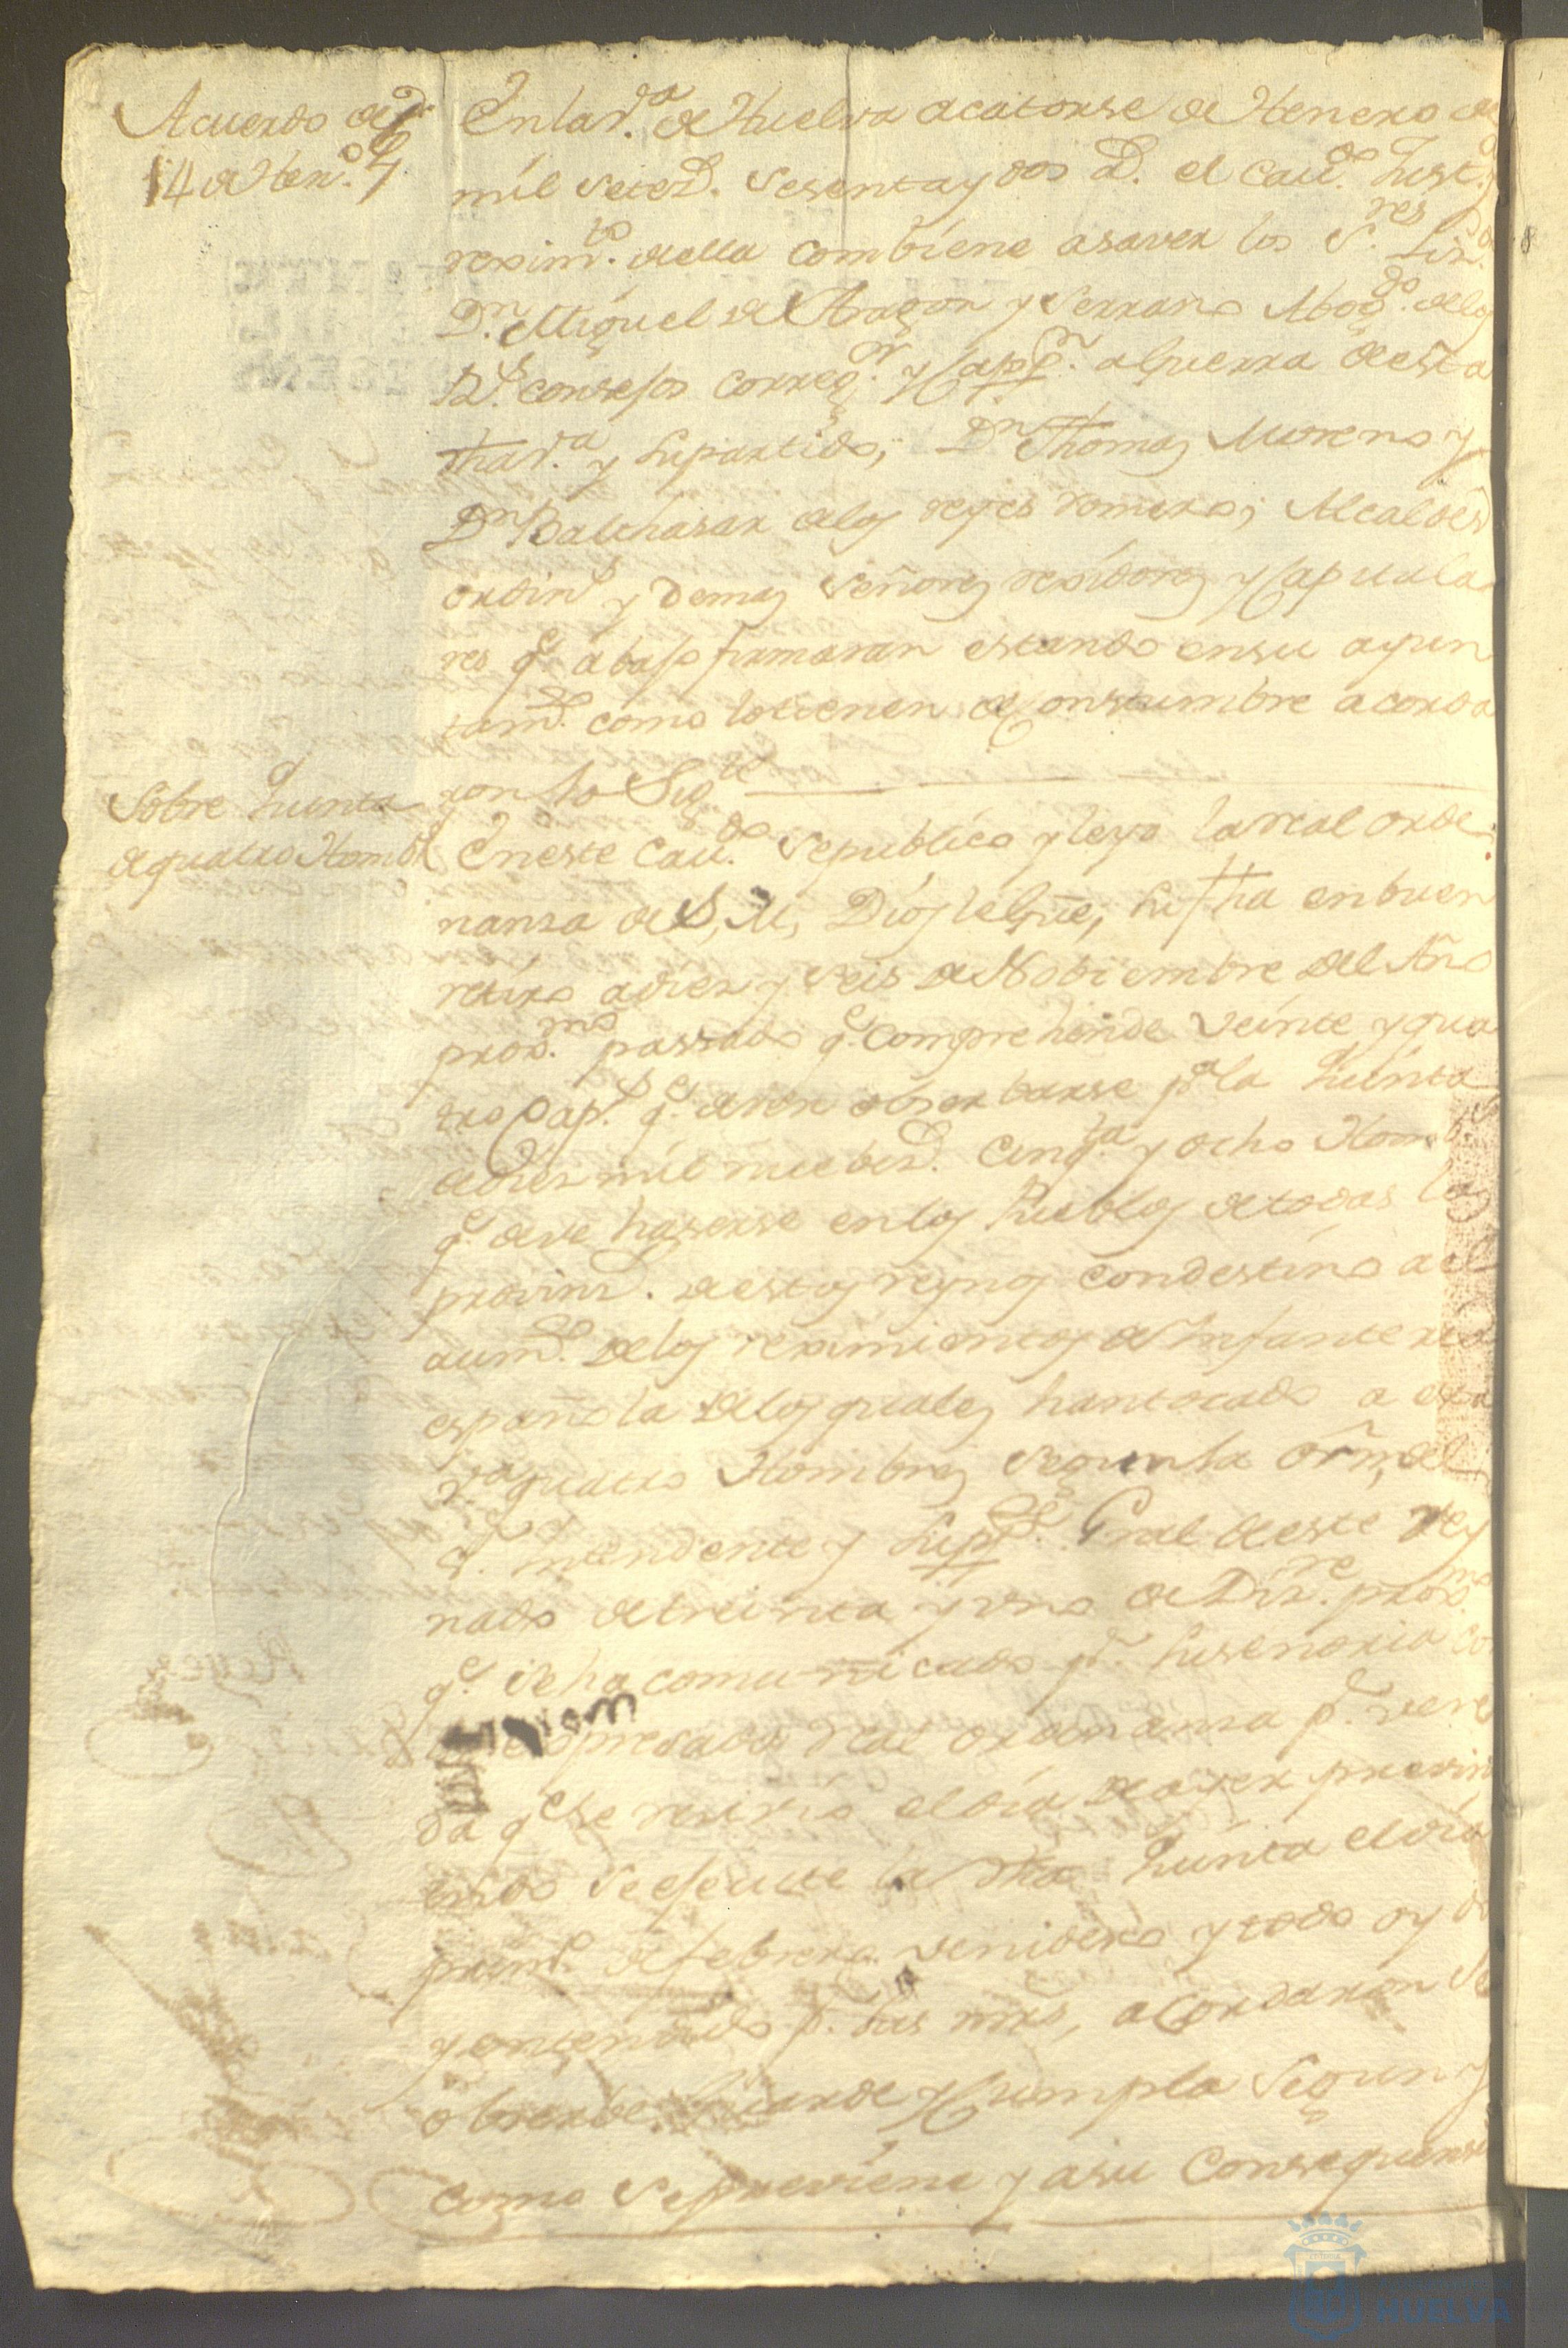 Acuerdo de
14 de Hen.o
En la v.a de Huelva a catorse de Henero de
mil setez.s sesenta y dos a.s el Cau.do Just.a y
reximi.to della combiene a saver los S.res Liz.do
D.n Miguel de Aragon y Serrano Abog.do de los
R.s consejos correg.r y Capp.n a guerra de esta
dha v.a y su partido, D.n Thomas Moreno y
D.n Balthasar de los reyes romero, Alcaldes
ordin.s y demas señores rexidores y Capitula
res q.e abajo firmaran estando en su ayun
tam.to como lo tienen de Constumbre acorda
ron lo Sig.te
Sobre Lunta
de quatro Homb.s
En este Cau.do se publico y leyo la real orde
nansa de S, M, Dios le gue, su fha en buen
retiro a diez y seis de Nobiembre del Año
prox.mo passado q.e comprehende veinte y qua
tro Cap.s q.e deven obserbarse p.a la Lunta
de dies mil nuebez.s Cinq.ta y ocho Homb.s
q.e deve haserse en los Pueblos de todas las
provinz.s de estos reynos con destino a el
aum.to de los reximientos de Infanteria
española de los quales han tocado a esta
v.a quatro Hombres segun la orn, del
S.r intendente y Sup.te Gral de este Rey
nado de treinta y uno de Diz.re prox.mo
q.e se ha comunicado p.r su senoria co
expresada real ordenansa p.r vere
da q.e se resivio el dia de ayer previn
endo se execute la dha Lunta el dia
prim.o de febrero venidero y todo oydo
y entendido p.r sus mrds, acordaron se
obserbe guarde y Cumpla segun y
como se previene y a su Consequensi
HUELVA